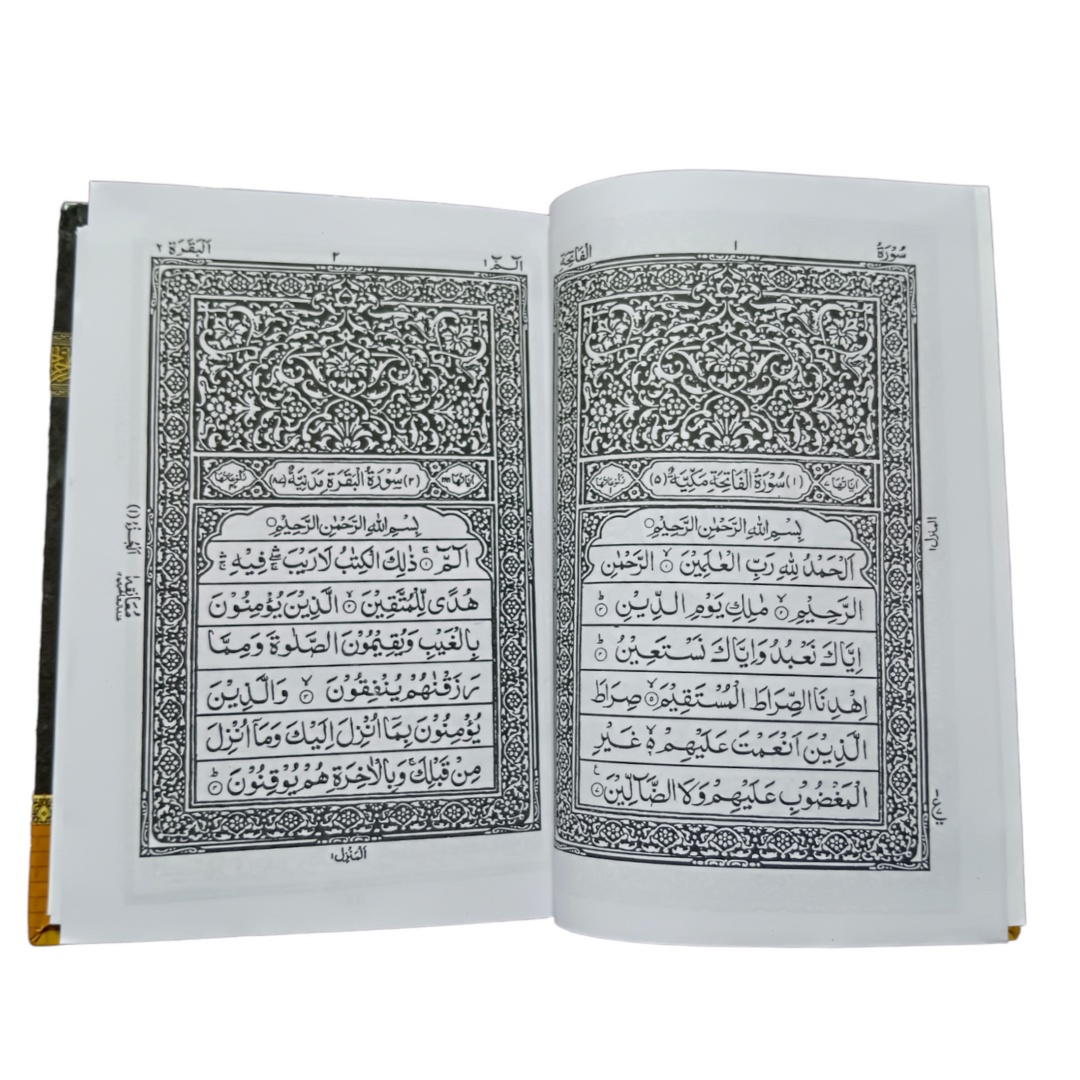 سُوْرَةُ
١
الْفَاتِحَة
اٰيَاتُهَا ٧
(١) سُوْرَةُ الْفَاتِحَةِ مَكِّيَّةٌ (٥)
بِسْمِ اللهِ الرَّحْمٰنِ الرَّحِيْمِ
اَلْحَمْدُ لِلّٰهِ رَبِّ الْعٰلَمِيْنَ ۙ١ الرَّحْمٰنِ
الرَّحِيْمِ ۙ٢ مٰلِكِ يَوْمِ الدِّيْنِ ؕ٣
اِيَّاكَ نَعْبُدُ وَاِيَّاكَ نَسْتَعِيْنُ ؕ٤
اِهْدِنَا الصِّرَاطَ الْمُسْتَقِيْمَ ۙ٥ صِرَاطَ
الَّذِيْنَ اَنْعَمْتَ عَلَيْهِمْ ۙ٦ غَيْرِ
الْمَغْضُوْبِ عَلَيْهِمْ وَلَا الضَّآلِّيْنَ ٧
المنزل ١
الٓـمّٓ ١
٢
اَلْبَقَرَة ٢
اٰيَاتُهَا ٢٨٦
(٢) سُوْرَةُ الْبَقَرَةِ مَدَنِيَّةٌ (٨٧)
بِسْمِ اللهِ الرَّحْمٰنِ الرَّحِيْمِ
الٓمّٓ ۚ١ ذٰلِكَ الْكِتٰبُ لَا رَيْبَ ۛ فِيْهِ ۛ
هُدًى لِّلْمُتَّقِيْنَ ۙ٢ الَّذِيْنَ يُؤْمِنُوْنَ
بِالْغَيْبِ وَيُقِيْمُوْنَ الصَّلٰوةَ وَمِمَّا
رَزَقْنٰهُمْ يُنْفِقُوْنَ ۙ٣ وَالَّذِيْنَ
يُؤْمِنُوْنَ بِمَآ اُنْزِلَ اِلَيْكَ وَمَآ اُنْزِلَ
مِنْ قَبْلِكَ ۚ وَبِالْاٰخِرَةِ هُمْ يُوْقِنُوْنَ ؕ٤
اَلْجُزْءُ (١)
مُعَانَقَة
اَلْمَنْزِل ١